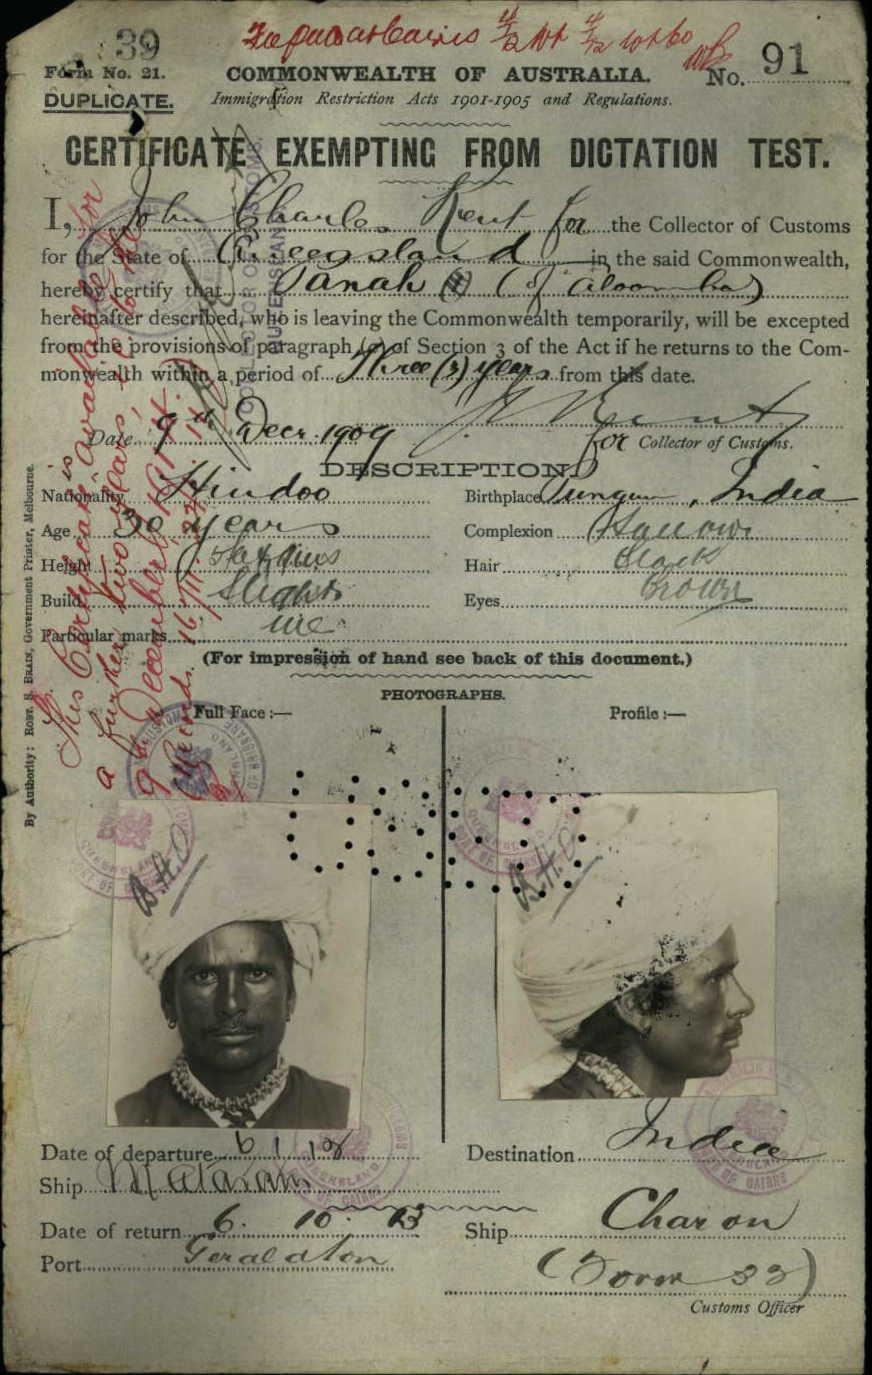 39
Fee paid at Cairns
Form No. 21.
COMMONWEALTH OF AUSTRALIA.
No. 91
DUPLICATE.
Immigration Restriction Acts 1901-1905 and Regulations.
CERTIFICATE EXEMPTING FROM DICTATION TEST.
I, John Charles Kent for the Collector of Customs
for the State of Queensland in the said Commonwealth,
hereby certify that Panah (of Aloomba)
hereinafter described, who is leaving the Commonwealth temporarily, will be excepted
from the provisions of paragraph (a) of Section 3 of the Act if he returns to the Com-
monwealth within a period of Three (3) years from this date.
Date 9th Decr 1909
J C Kent
for Collector of Customs.
DESCRIPTION
Nationality Hindoo
Birthplace India
Age 30 years
Complexion
Height
Hair Black
Build Slight
Eyes Brown
Particular marks
(For impression of hand see back of this document.)
PHOTOGRAPHS.
Full Face :—
Profile :—
This Certificate is available for
a further two years, i.e. to the
9th December 1914.
By Authority: ROBT. S. BRAIN, Government Printer, Melbourne.
B.H.O
B.H.O
Date of departure 6 1 10
Destination India
Ship Mataram
Date of return 6. 10. 13
Ship Charon
Port Geraldton
(Form 32)
Customs Officer